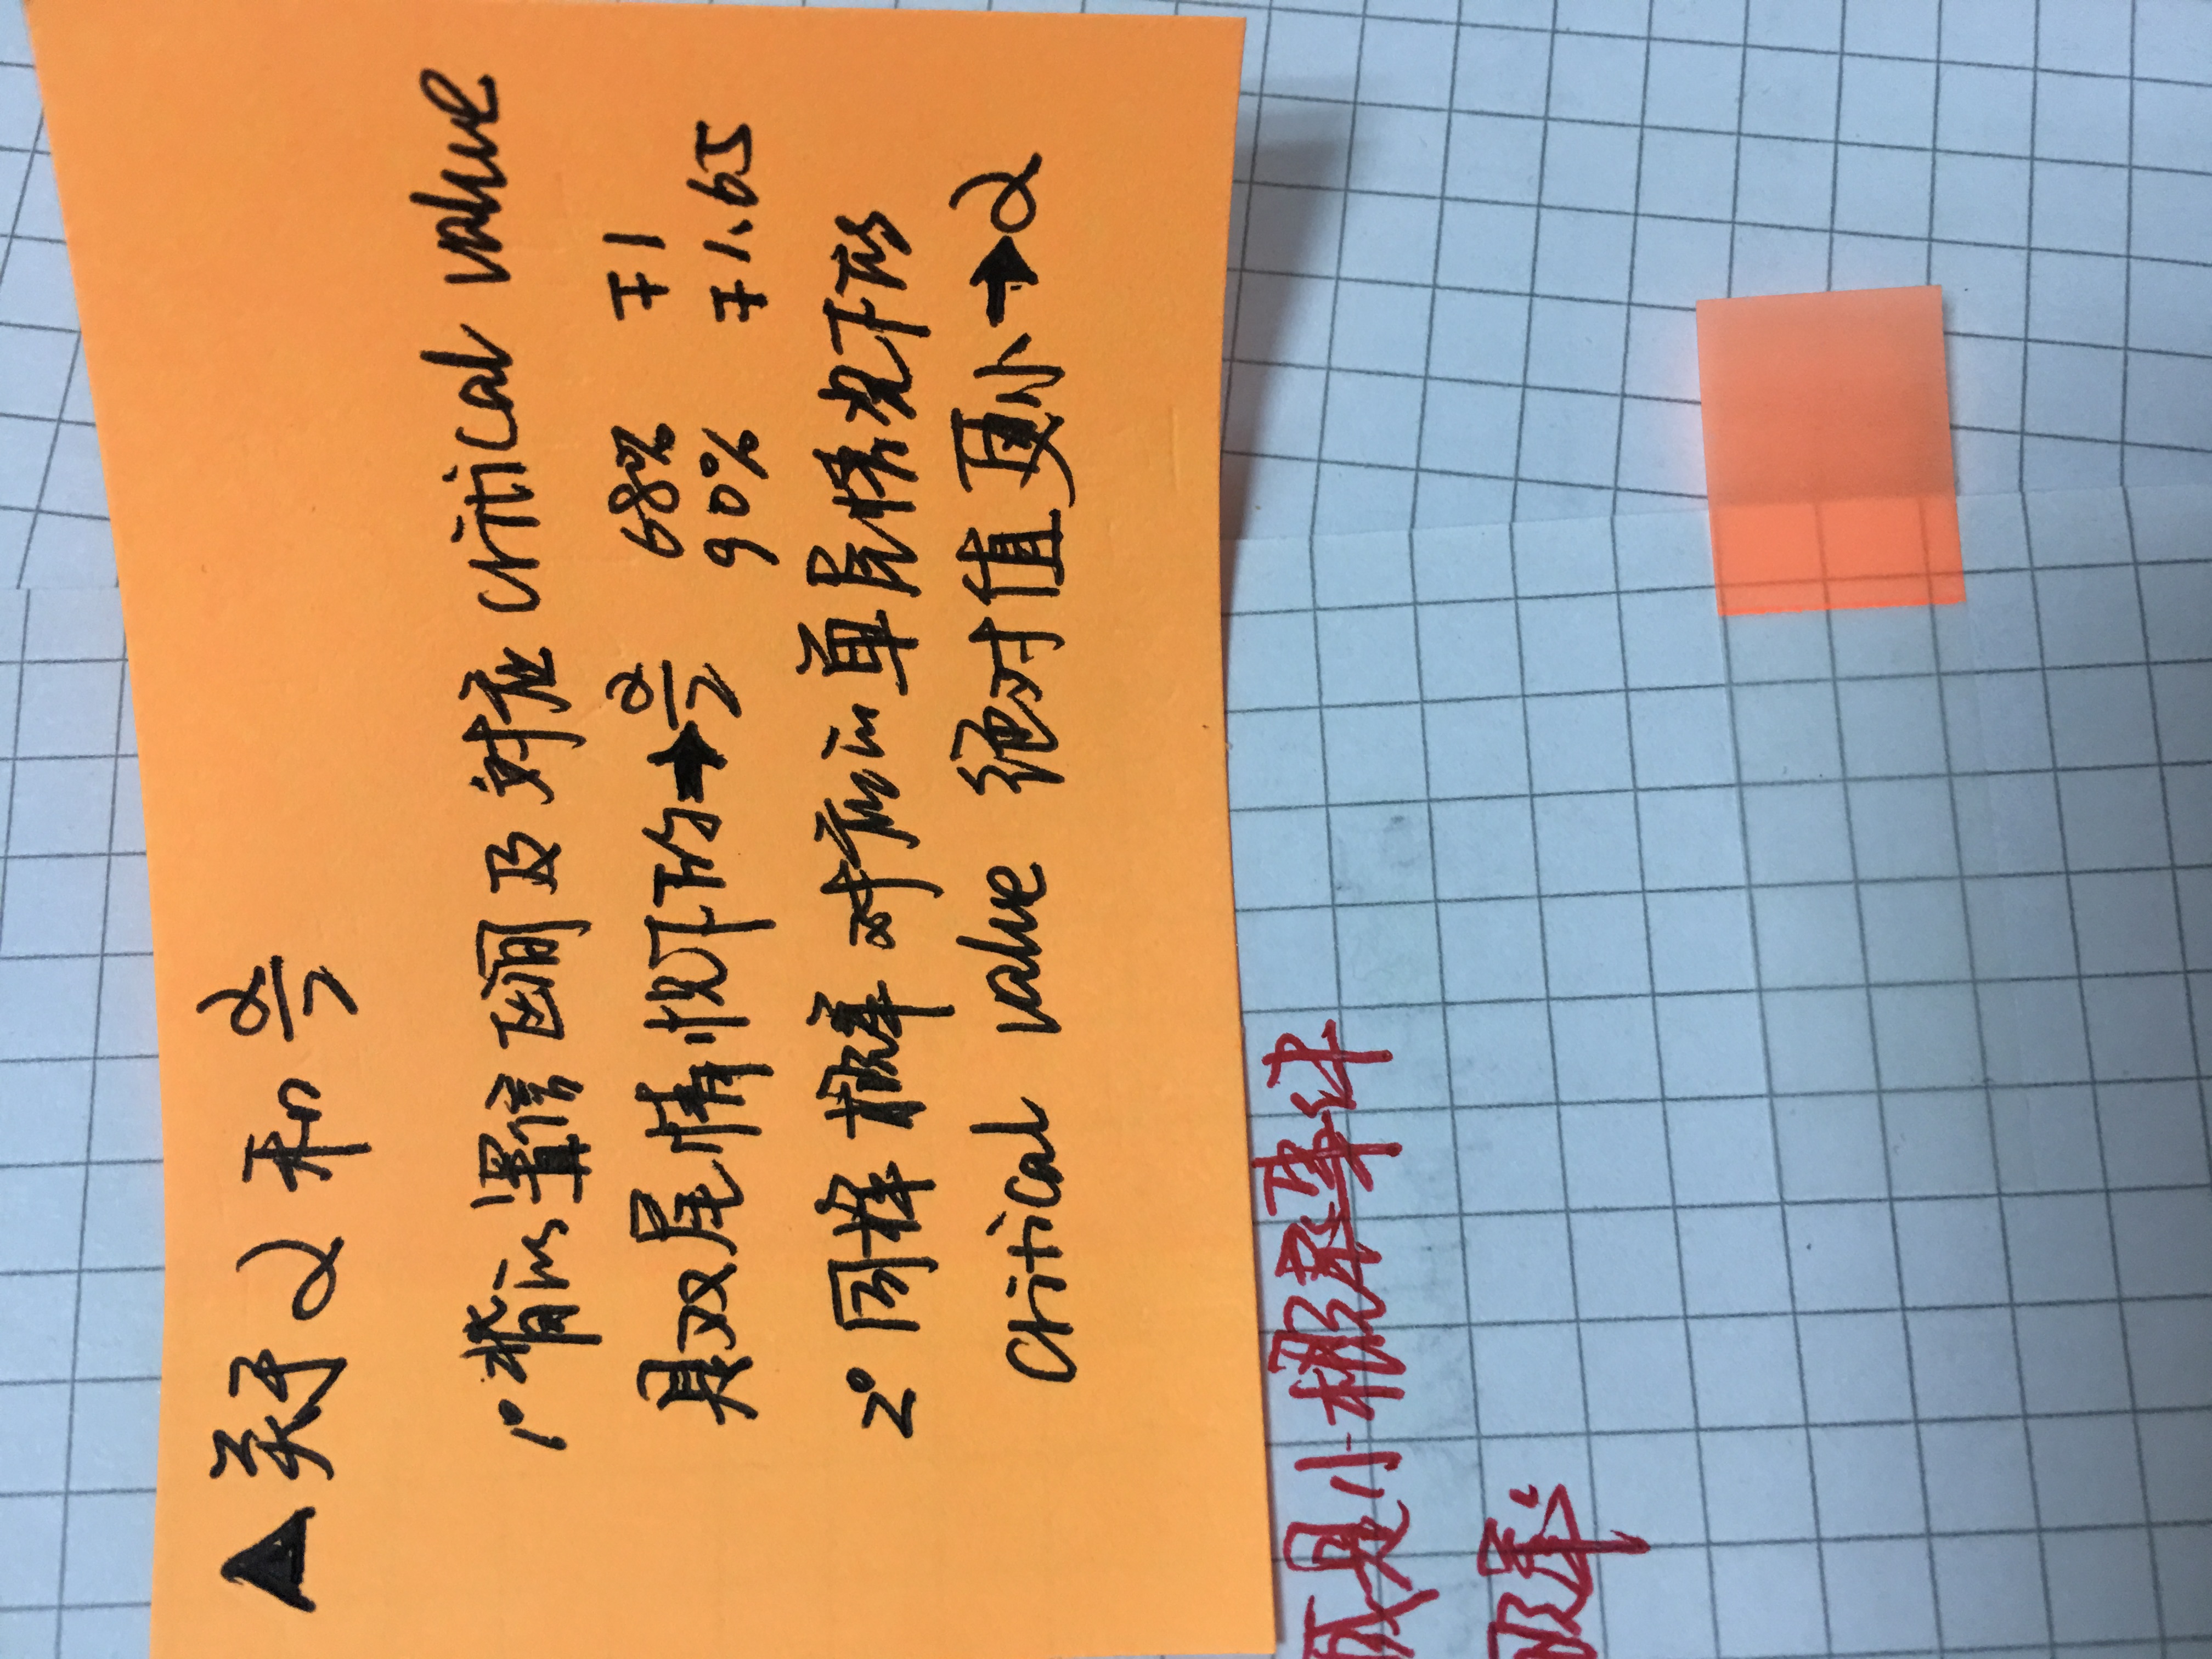 ▲关于 α 和 α/2
1° 背的置信区间及对应 critical value
是双尾情况下的→α/2 68% ∓1
90% ∓1.65
2° 同样概率对应的单尾情况下的
critical value 绝对值更小→α
小概率